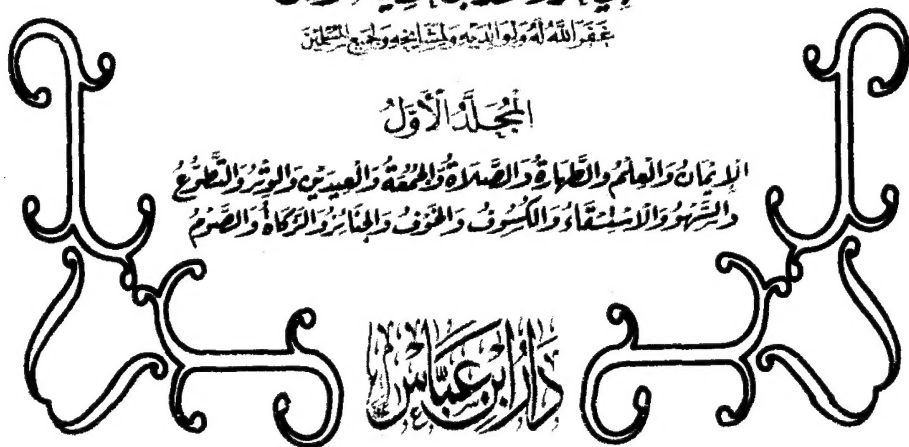 غَفَرَ اللَّهُ لَهُ وَلِوَالِدَيْهِ وَلِمَشَايِخِهِ وَلِجَمِيعِ الْمُسْلِمِينَ
الْمُجَلَّدُ الْأَوَّلُ
الْإِيمَانُ وَالْعِلْمُ وَالطَّهَارَةُ وَالصَّلَاةُ وَالْجُمُعَةُ وَالْعِيدَيْنِ وَالْوِتْرُ وَالتَّطَوُّعُ
وَالسَّهْوُ وَالِاسْتِسْقَاءُ وَالْكُسُوفُ وَالْخَوْفُ وَالْجَنَائِزُ وَالزَّكَاةُ وَالصَّوْمُ
دَارُ ابْنِ عَبَّاسٍ